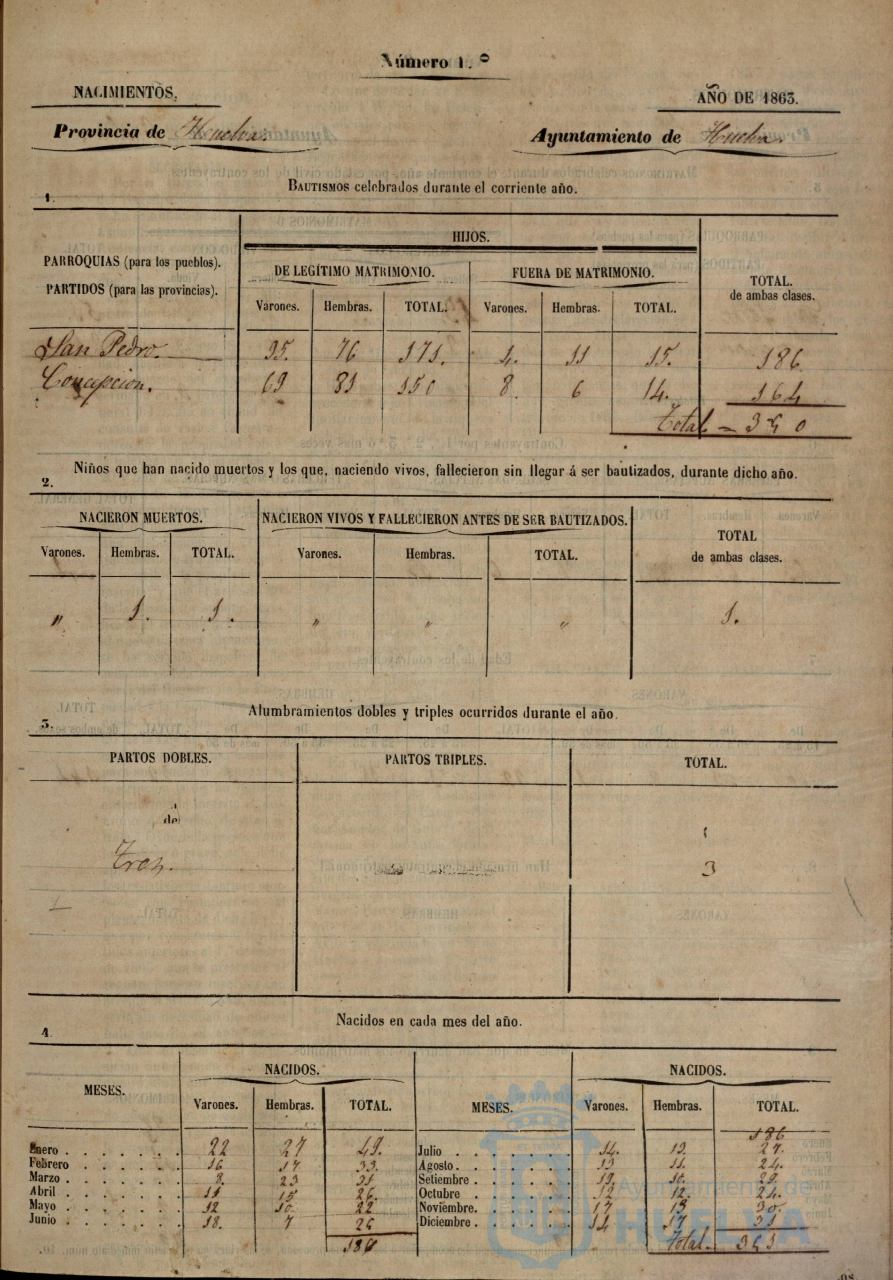 Número 1.º
NACIMIENTOS.
AÑO DE 1863.
Provincia de Huelva.
Ayuntamiento de Huelva.
1.
BAUTISMOS celebrados durante el corriente año.
HIJOS.
PARROQUIAS (para los pueblos).
PARTIDOS (para las provincias).
DE LEGÍTIMO MATRIMONIO.
FUERA DE MATRIMONIO.
TOTAL.
de ambas clases.
Varones. Hembras. TOTAL. Varones. Hembras. TOTAL.
San Pedro. 95. 76 171. 4. 11 15. 186
Concepcion. 69 81 150 8. 6 14. 164
Total = 350
2.
Niños que han nacido muertos y los que, naciendo vivos, fallecieron sin llegar á ser bautizados, durante dicho año.
NACIERON MUERTOS.
NACIERON VIVOS Y FALLECIERON ANTES DE SER BAUTIZADOS.
TOTAL
de ambas clases.
Varones. Hembras. TOTAL. Varones. Hembras. TOTAL.
" 1. 1. " " " 1.
3.
Alumbramientos dobles y triples ocurridos durante el año.
PARTOS DOBLES. PARTOS TRIPLES. TOTAL.
Tres. 3
4.
Nacidos en cada mes del año.
MESES.
NACIDOS.
Varones. Hembras. TOTAL.
MESES.
NACIDOS.
Varones. Hembras. TOTAL.
186
Enero . . . . . . . 22 27 49. Julio . . . . . . . 14. 13. 27.
Febrero . . . . . . 16 17 33. Agosto . . . . . . 13 11. 24.
Marzo . . . . . . . 8. 23 31 Setiembre . . . . . 19. 10. 29.
Abril . . . . . . . 11 15 26. Octubre . . . . . . 12 12. 24.
Mayo . . . . . . . 12 10. 22 Noviembre . . . . . 17 13 30.
Junio . . . . . . . 18. 7 25 Diciembre . . . . . 14 17 31
186
Total. 351
Ayuntamiento de
HUELVA